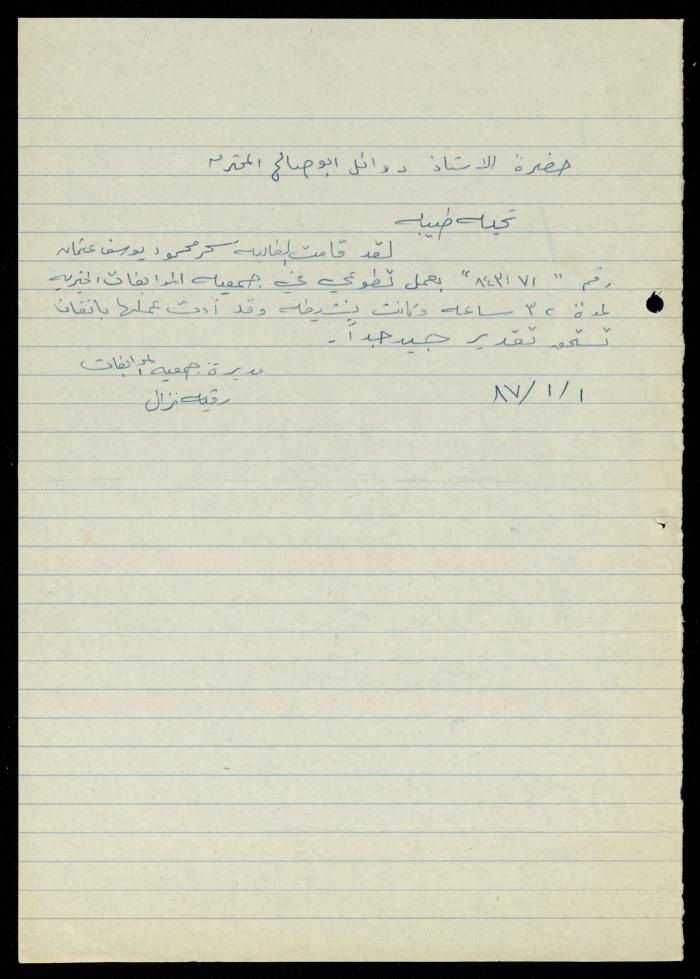 حضرة الاستاذ د وائل ابو صالح المحترم
تحيه طيبه
لقد قامت الطالبه سحر محمود يوسف عثمان
رقم " ٨٤٣١٧١ " بعمل تطوعي في جمعيه المرابطات الخيريه
لمدة ٣٠ ساعه وكانت نشيطه وقد أدت عملها باتقان
تستحق تقدير جيد جداً .
مديرة جمعيه المرابطات
رقيه نزال
٨٧/١/١